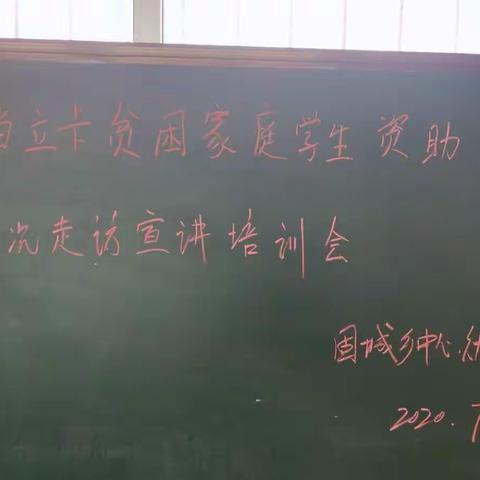 档立卡贫困家庭学生资助
况走访宣讲培训会
固城乡中心
2020.7